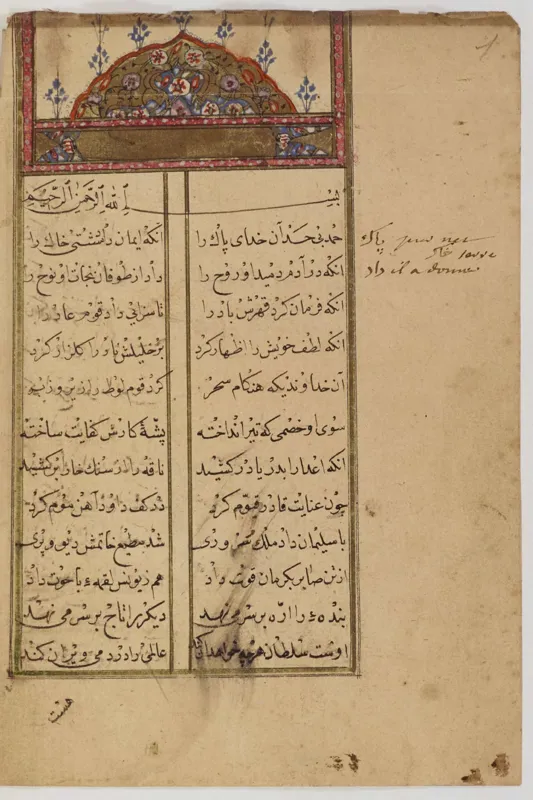 بسم الله الرحمن الرحیم
حمد بی حد آن خدای پاک را انکه ایمان داد مشتی خاک را
انکه در آدم دمید او روح را داد از طوفان نجات او نوح را
انکه فرمان کرد قهرش باد را تا سزایی داد قوم عاد را
انکه لطف خویش را اظهار کرد بر خلیلش نار را کلزار کرد
آن خداوندیکه هنکام سحر کرد قوم لوط را زیر و زبر
سوی او خصمی که تیر انداخته پشهٔ کارش کفایت ساخته
انکه اعدا را بدریا در کشید ناقه را از سنک خارا بر کشید
چون عنایت قادر قیوم کرد در کف داود آهن موم کرد
با سلیمان داد ملک سروری شد مطیع خاتمش دیو و پری
از تن صابر بکرمان قوت داد هم ز یونس لقمهٔ با حوت داد
بندهٔ را اره بر سر می نهد دیکری را تاج بر سر می نهد
اوست سلطان هرچه خواهد آن کند عالمی را در دمی ویران کند
پاک pur net
خاک terre
داد il a donné
هست